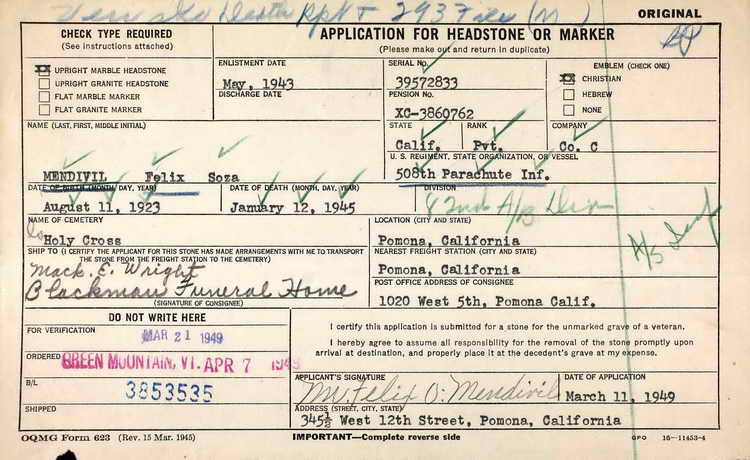 Rpt 293 File (M)
ORIGINAL
CHECK TYPE REQUIRED
(See instructions attached)
XX UPRIGHT MARBLE HEADSTONE
UPRIGHT GRANITE HEADSTONE
FLAT MARBLE MARKER
FLAT GRANITE MARKER
APPLICATION FOR HEADSTONE OR MARKER
(Please make out and return in duplicate)
ENLISTMENT DATE
May, 1943
DISCHARGE DATE
SERIAL No.
39572833
PENSION No.
XC-3860762
EMBLEM (CHECK ONE)
XX CHRISTIAN
HEBREW
NONE
NAME (LAST, FIRST, MIDDLE INITIAL)
MENDIVIL Felix Soza
STATE
Calif.
RANK
Pvt.
COMPANY
Co. C
U. S. REGIMENT, STATE ORGANIZATION, OR VESSEL
508th Parachute Inf.
DATE OF BIRTH (MONTH, DAY, YEAR)
August 11, 1923
DATE OF DEATH (MONTH, DAY, YEAR)
January 12, 1945
DIVISION
82nd A/B Div
NAME OF CEMETERY
Holy Cross
LOCATION (CITY AND STATE)
Pomona, California
SHIP TO (I CERTIFY THE APPLICANT FOR THIS STONE HAS MADE ARRANGEMENTS WITH ME TO TRANSPORT
THE STONE FROM THE FREIGHT STATION TO THE CEMETERY)
Mack. E. Wright
Blackman Funeral Home
(SIGNATURE OF CONSIGNEE)
NEAREST FREIGHT STATION (CITY AND STATE)
Pomona, California
POST OFFICE ADDRESS OF CONSIGNEE
1020 West 5th, Pomona Calif.
DO NOT WRITE HERE
FOR VERIFICATION
MAR 21 1949
ORDERED
GREEN MOUNTAIN, VT. APR 7 1949
B/L
3853535
SHIPPED
I certify this application is submitted for a stone for the unmarked grave of a veteran.
I hereby agree to assume all responsibility for the removal of the stone promptly upon
arrival at destination, and properly place it at the decedent's grave at my expense.
APPLICANT'S SIGNATURE
Mr. Felix O. Mendivil
DATE OF APPLICATION
March 11, 1949
ADDRESS (STREET, CITY, STATE)
345½ West 12th Street, Pomona, California
OQMG Form 623 (Rev. 15 Mar. 1945)
IMPORTANT—Complete reverse side
GPO 16—11453-4